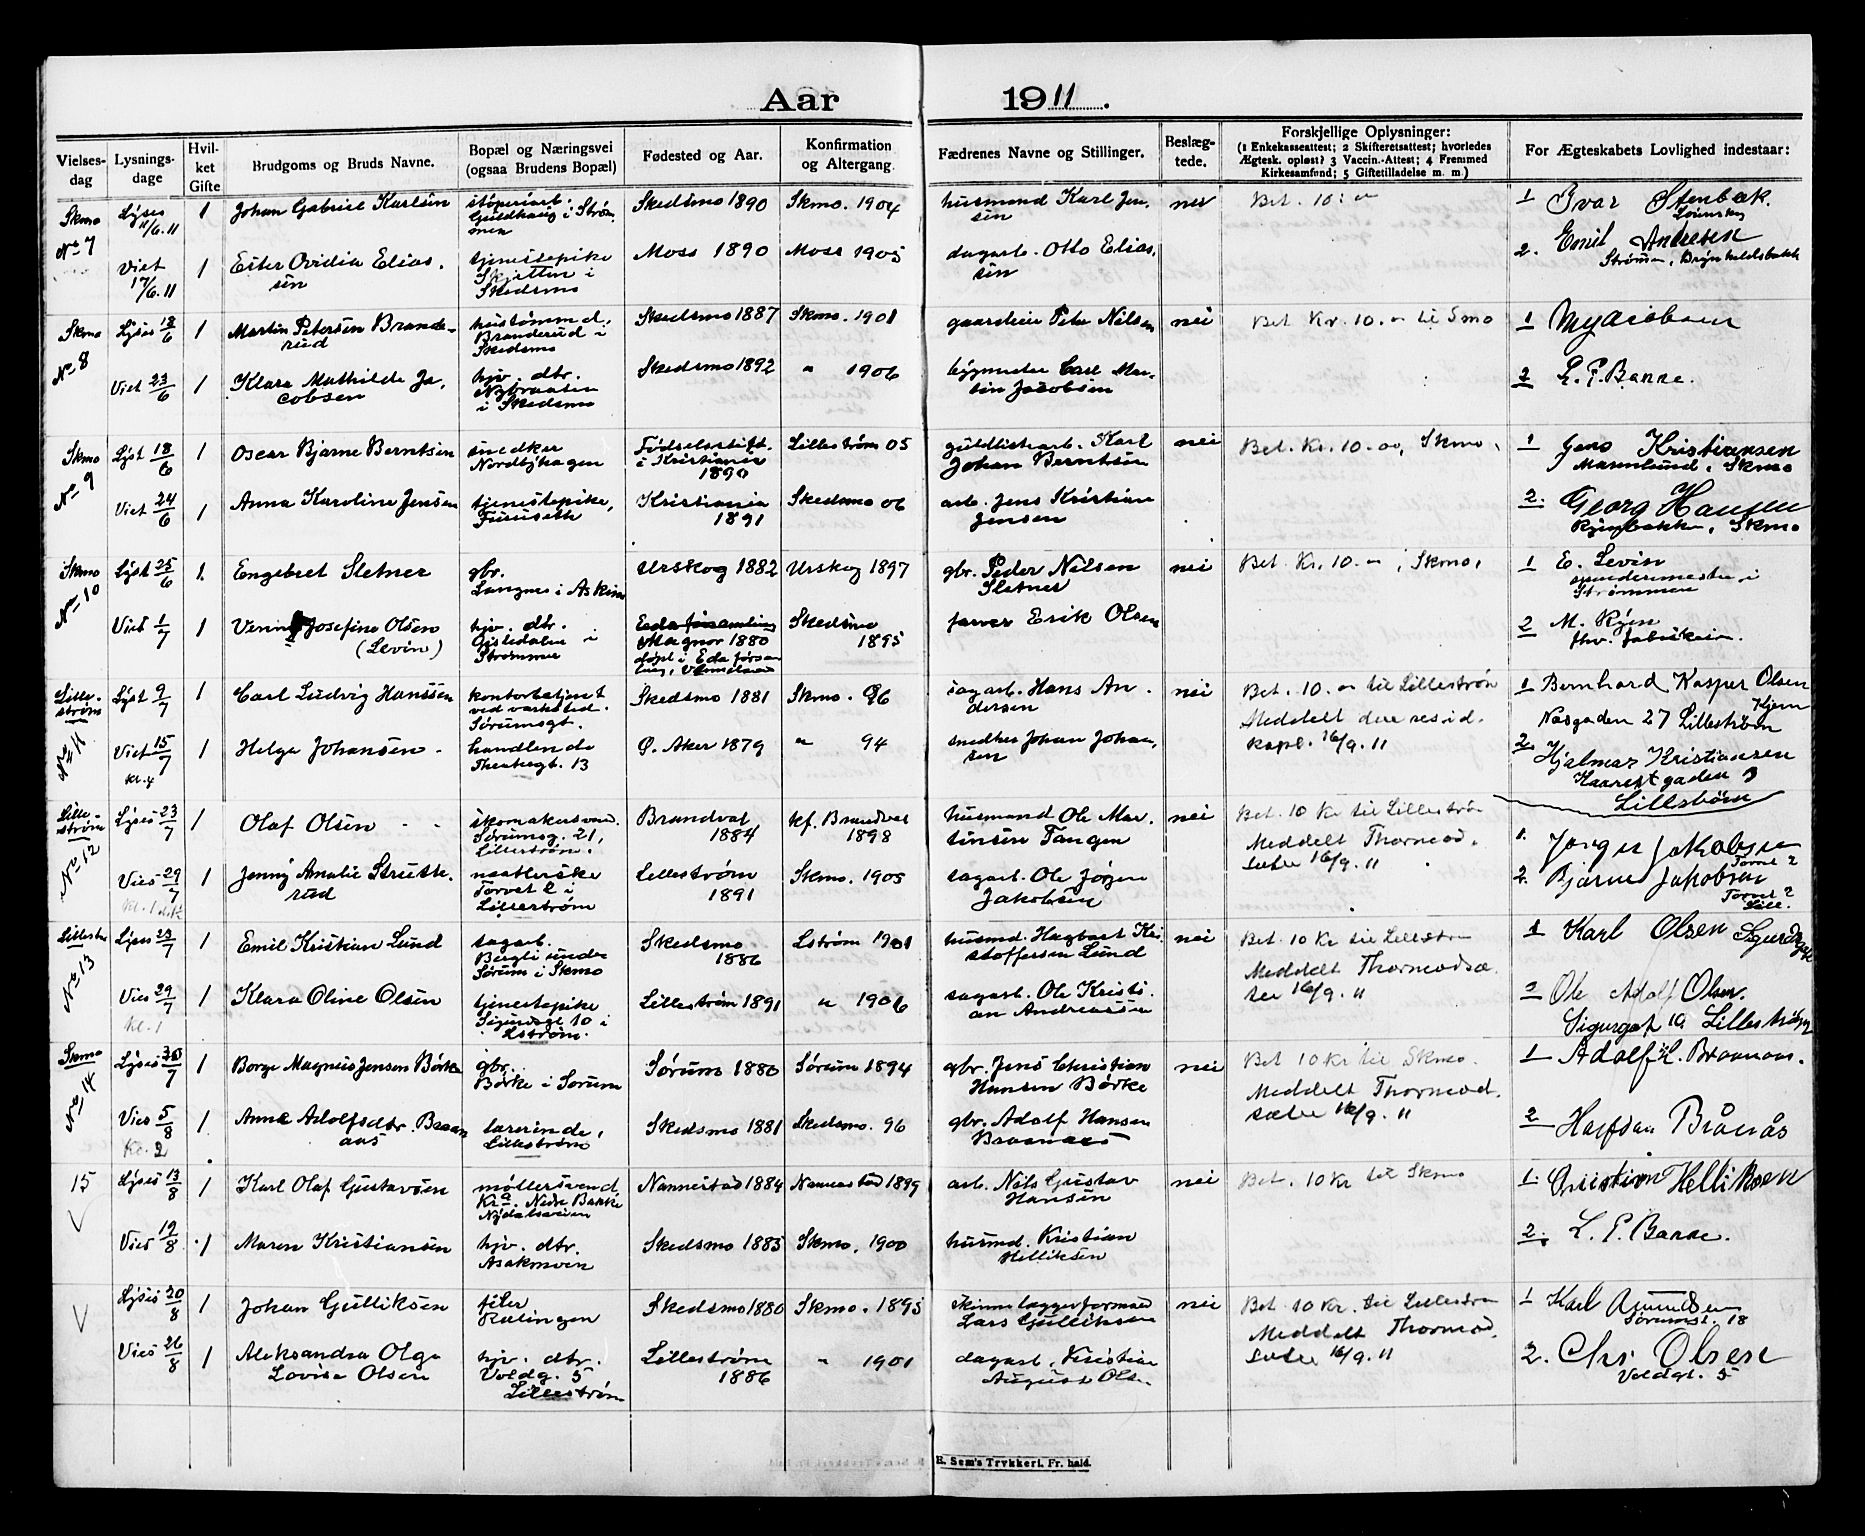 Aar 1911.
Vielses-dag
Lysnings-dage
Hvil-ket Gifte
Brudgoms og Bruds Navne.
Bopæl og Næringsvei (ogsaa Brudens Bopæl)
Fødested og Aar.
Konfirmation og Altergang.
Fædrenes Navne og Stillinger.
Beslæg-tede.
Forskjellige Oplysninger:
(1 Enkekasseattest; 2 Skifteretsattest; hvorledes
Ægtesk. opløst? 3 Vaccin.-Attest; 4 Fremmed
Kirkesamfund; 5 Giftetilladelse m. m.)
For Ægteskabets Lovlighed indestaar:
Skmo No 7
Lyses 11/6.11 1 Johan Gabriel Karlsen
støperiarb. Guldhaug i Strømmen
Skedsmo 1890 Skmo. 1904
husmand Karl Jensen nei
Bet. 10.–
1 Ivar Stenbæk.
Viet 17/6.11 1 Ester Ovidia Eliassen
tjenestepike Skjetten i Skedsmo
Moss 1890 Moss 1905
dagarb. Otto Eliassen
2. Emil Andresen
Strømmen, Brynhildsbakk
Skmo No 8
Lyses 18/6 1 Martin Petersen Branderud
hustømmd. Branderud i Skedsmo
Skedsmo 1887 Skmo. 1901
gaardeier Peter Nilsen nei
Bet Kr. 10.– til Smo
1
Viet 23/6 1 Klara Mathilde Jacobsen
hjv. dtr. Nybraaten i Skedsmo
Skedsmo 1892 " 1906
bygmester Carl Martin Jacobsen
2 L. P. Banne.
Skmo No 9
Lyst 18/6 1 Oscar Bjarne Berntsen
snedker Nordbyhagen
Fødselsstift. i Kristiania 1890 Lillestrøm 05
guldlistarb. Karl Johan Berntsen nei
Bet. Kr. 10.00, Skmo.
1 Jens Kristiansen
Marenlund, Skmo
Viet 24/6 1 Anna Karoline Jensen
tjenestepike, Furuseth
Kristiania 1891 Skedsmo 06
arb. Jens Kristian Jensen
2. Georg Hansen
Skmo
Skmo No 10
Lyst 25/6 1 Engebret Sletner
gbr. Langnes i Askim
Urskog 1882 Urskog 1897
gbr. Peder Nilsen Sletner nei
Bet. Kr. 10.–, Skmo.
1 E. Levin
spindemester i Strømmen
Viet 1/7 1 Josefine Olsen (Levin)
hjv. dtr. Gisledalen i Strømmen
Eda församling Magnor 1880
døpt i Eda försam
Skedsmo 1895
farver Erik Olsen
2 M. Ryen
fhv. fabrikeier.
Lillestrøm No 11
Lyst 9/7 1 Carl Ludvig Hanssen
kontorbetjent ved verksted. Sørumsgt.
Skedsmo 1881 Skmo. 96
sagarb. Hans Andersen nei
Bet. 10.– til Lillestrøm
Meddelt den resid. kapl. 16/9. 11
1 Bernhard Kasper Olsen
Nasgaden 27 Lillestrøm
Viet 15/7 kl. 4 1 Helga Johansen
handlende Theatergt. 13
Ø. Aker 1879 " 94
snedker Johan Johansen
2. Hjalmar Kristiansen
gaden 3
Lillestrøm
Lillestrøm No 12
Lyses 23/7 1 Olaf Olsen
skomakersvend. Sørumsg. 21, Lillestrøm.
Brandval 1884 kf. Brandval 1898
husmand Ole Martinsen Tangen nei
Bet. 10 Kr til Lillestrøm
Meddelt Thormodsæter 16/9. 11
1. Jørgen Jakobsen
Torvet 2
Vies 29/7 1 Jenny Amalie Strutterud
Torvet 2 i Lillestrøm
Lillestrøm 1891 Skmo. 1905
sagarb. Ole Jørgen Jakobsen
2. Bjarne Jakobsen
Torvet 2 Lill.
Lillestrøm No 13
Lyses 23/7 1 Emil Kristian Lund
sagarb. Bergli under Sørum i Skmo
Skedsmo 1886 Lstrøm 1901
husmd. Hagbart Kristoffersen Lund nei
Bet. 10 Kr til Lillestrøm
Meddelt Thormodsæter 16/9. 11
1 Karl Olsen
Vies 29/7 Kl. 1 1 Klara Oline Olsen
tjenestepike Sigurdsgt 10 i Lstrøm.
Lillestrøm 1891 " 1906
sagarb. Ole Kristian Andreassen
2 Ole Adolf Olsen.
10 Lillestrøm
Skmo No 14
Lyses 30/7 1 Borge Magnus Jensen Børke
gbr. Børke i Sørum
Sørum 1880 Sørum 1894
gbr. Jens Christian Hansen Børke nei
Bet 10 Kr til Skmo.
Meddelt Thormodsæter 16/9. 11
1 Adolf H. Braanaas.
Vies 5/8 Kl. 2 1 Anna Adolfsdtr. Braanaas
lærerinde, Lillestrøm
Skedsmo 1881 Skedsmo. 96
gbr. Adolf Hansen Braanaas
2 Halfdan Brånås
15
Lyses 13/8 1 Karl Olaf Gustavsen
møllersvend, Kra. Nedre Bakke Nydalsveien
Nannestad 1884 Nannestad 1899
arb. Nils Gustav Hansen nei
Bet. 10 Kr til Skmo
1. Christian Helliksen
Vies 19/8 1 Maren Kristiansen
hjv. dtr. Asakmoen
Skedsmo 1885 Skmo. 1900
husmd. Kristian Helliksen
2. L. P. Banne.
Lyses 20/8 1 Johan Gulliksen
filer Rælingen
Skedsmo 1880 Skmo. 1895
Lars Gulliksen nei
Bet 10 Kr. til Lillestrøm
Meddelt Thormodsæter 16/9. 11
1 Karl Amundsen
Sørumsgt. 18
Vies 26/8 1 Aleksandra Olga Lovise Olsen
hjv. dtr. Voldg. 5 Lillestrøm
Lillestrøm 1886 " 1901
dagarb. Kristian August Olsen
2. Chr Olsen
Voldgt. 5
E. Sem's Trykkeri, Fr. hald.